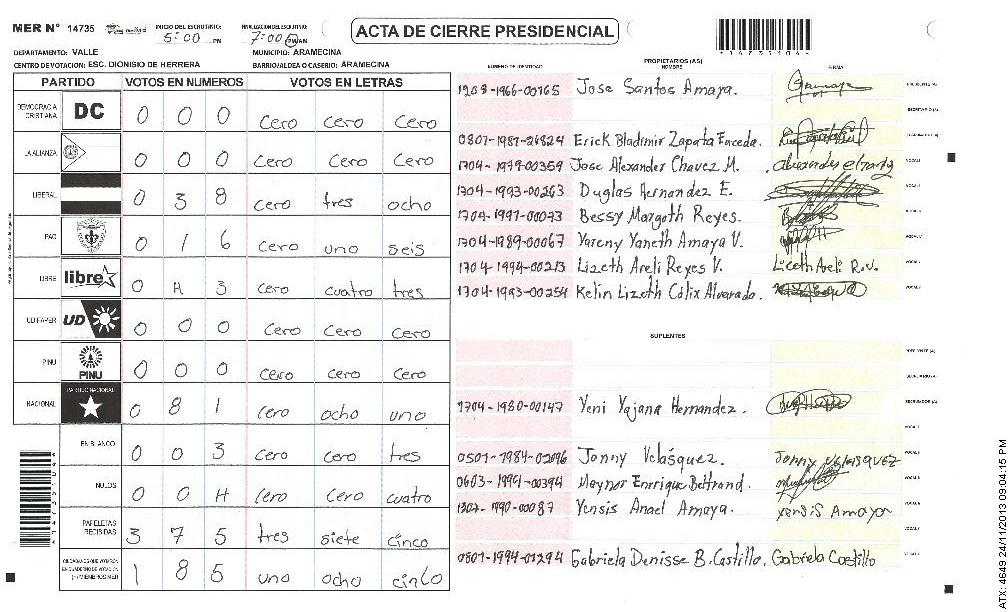 MER Nº 14735
INICIO DEL ESCRUTINIO: 5:00 PM
FINALIZACION DEL ESCRUTINIO: 7:00 PM/AM
ACTA DE CIERRE PRESIDENCIAL
DEPARTAMENTO: VALLE
MUNICIPIO: ARAMECINA
CENTRO DE VOTACION: ESC. DIONISIO DE HERRERA
BARRIO/ALDEA O CASERIO: ARAMECINA
PARTIDO VOTOS EN NUMEROS VOTOS EN LETRAS
DEMOCRACIA CRISTIANA DC 0 0 0 cero cero cero
LA ALIANZA 0 0 0 cero cero cero
LIBERAL 0 3 8 cero tres ocho
PAC 0 1 6 cero uno seis
LIBRE libre 0 4 3 cero cuatro tres
UD/FAPER UD 0 0 0 cero cero cero
PINU PINU 0 0 0 cero cero cero
NACIONAL PARTIDO NACIONAL 0 8 1 cero ocho uno
EN BLANCO 0 0 3 cero cero tres
NULOS 0 0 4 cero cero cuatro
PAPELETAS RECIBIDAS 3 7 5 tres siete cinco
CIUDADANOS QUE VOTARON EN CUADERNO DE VOTACION (+) MIEMBROS MER 1 8 5 uno ocho cinco
PROPIETARIOS (AS)
NUMERO DE IDENTIDAD NOMBRE FIRMA
1709-1966-00165 Jose Santos Amaya. PRESIDENTE (A)
SECRETARIO (A)
0801-1987-26824 Erick Bladimir Zapata Faceda.
1704-1979-00359 Jose Alexander Chavez M. VOCAL I
1704-1993-00263 Duglas Hernandez E.
1704-1997-00073 Bessy Margoth Reyes.
1704-1989-00067 Yoreny Yaneth Amaya V.
1704-1994-00213 Lizeth Areli Reyes V. Liceth Areli R.V.
1704-1993-00254 Kelin Lizeth Cálix Alvarado.
SUPLENTES
PRESIDENTE (A)
SECRETARIO (A)
1704-1980-00147 Yeni Yajana Hernandez.
0501-1984-02096 Jonny Velásquez. Jonny Velasquez
0603-1994-00394 Maynor Enrrique Beltrand.
Yensis Anael Amaya. yensis Amaya
0801-1994-01294 Gabriela Denisse B. Castillo. Gabriela Castillo
ATX: 4649 24/11/2013 09:04:15 PM